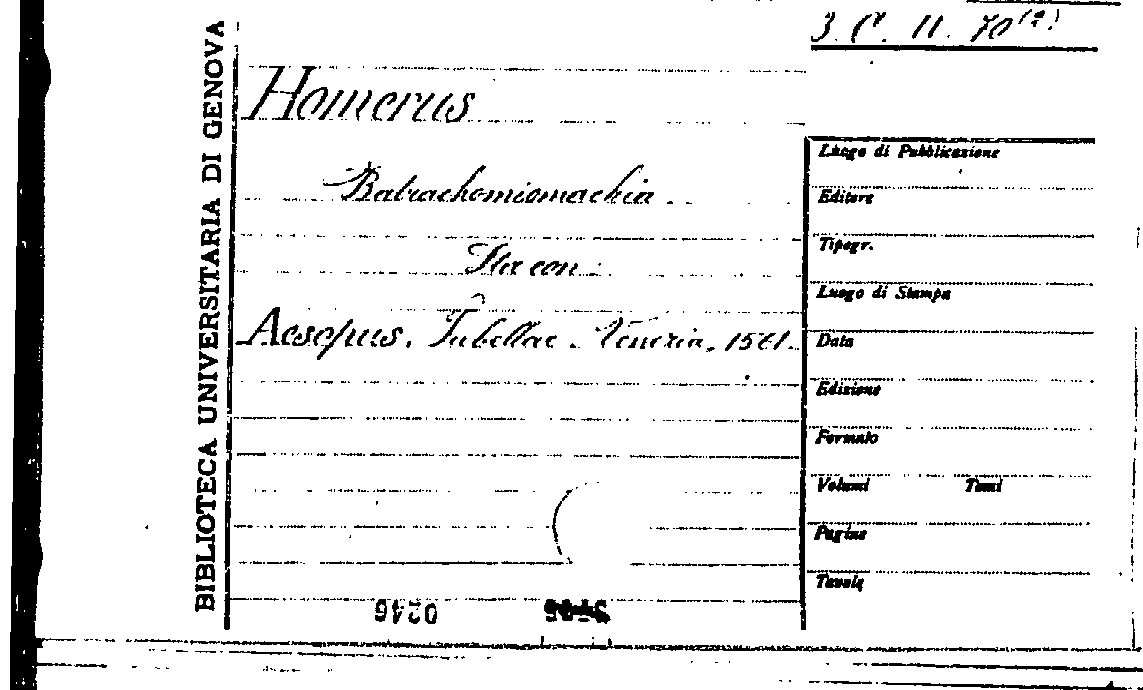 3. C. II. 70 (2)
BIBLIOTECA UNIVERSITARIA DI GENOVA
Homerus
Batrachomiomachia
Sta con
Aesopus. Fabellae. Venezia, 1561.
Luogo di Pubblicazione
Editore
Tipogr.
Luogo di Stampa
Data
Edizione
Formato
Volumi Tomi
Pagine
Tavole
0246